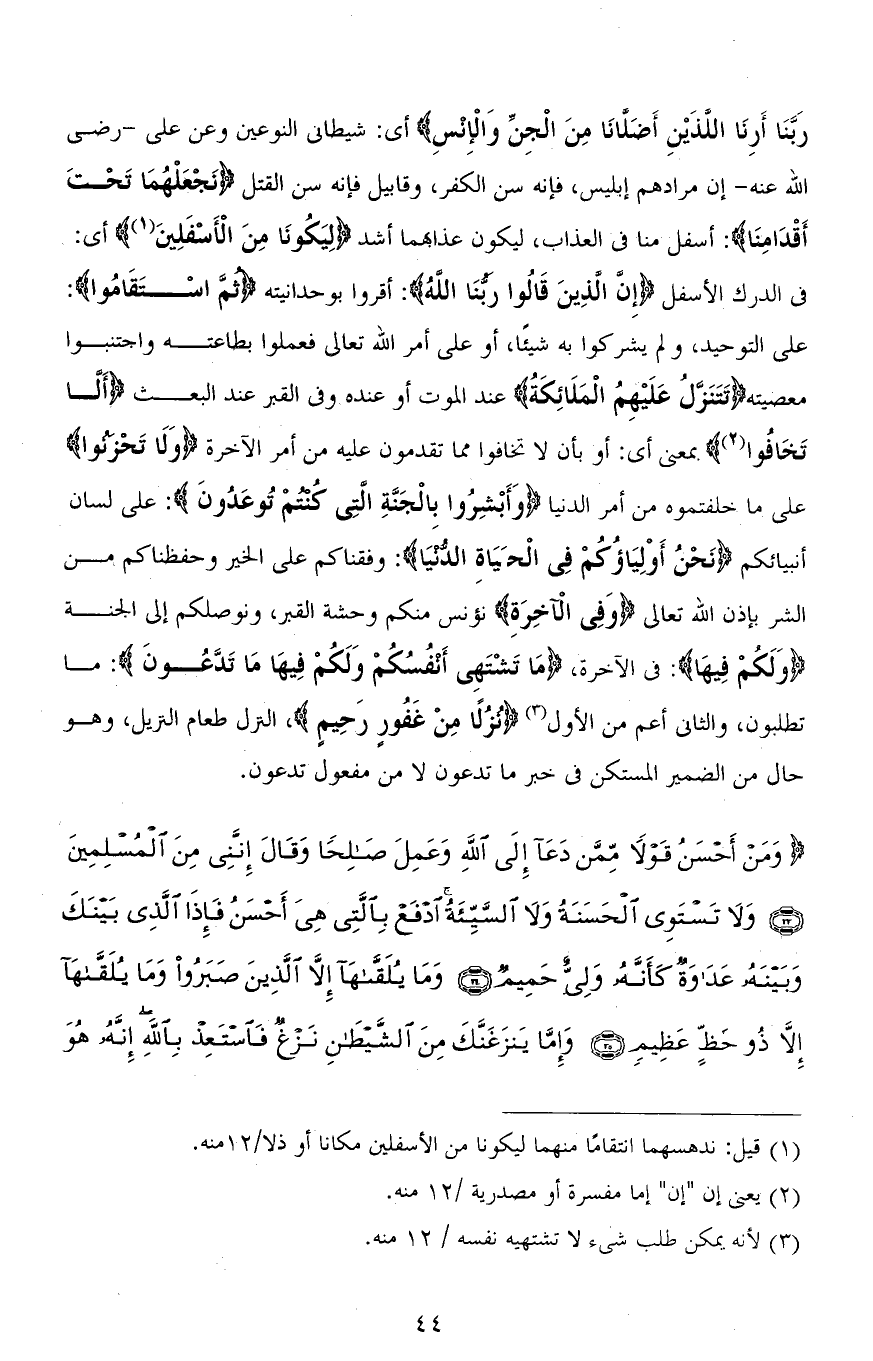 رَبَّنَا أَرِنَا اللَّذَيْنِ أَضَلَّانَا مِنَ الْجِنِّ وَالْإِنْسِ﴾ أى: شيطانى النوعين وعن على –رضى
الله عنه– إن مرادهم إبليس، فإنه سن الكفر، وقابيل فإنه سن القتل ﴿نَجْعَلْهُمَا تَحْتَ
أَقْدَامِنَا﴾: أسفل منا فى العذاب، ليكون عذابهما أشد ﴿لِيَكُونَا مِنَ الْأَسْفَلِينَ(١)﴾ أى:
فى الدرك الأسفل ﴿إِنَّ الَّذِينَ قَالُوا رَبُّنَا اللَّهُ﴾: أقروا بوحدانيته ﴿ثُمَّ اسْتَقَامُوا﴾:
على التوحيد، و لم يشركوا به شيئًا، أو على أمر الله تعالى فعملوا بطاعته واجتنبوا
معصيته﴿تَتَنَزَّلُ عَلَيْهِمُ الْمَلَائِكَةُ﴾ عند الموت أو عنده وفى القبر عند البعث ﴿أَلَّا
تَخَافُوا(٢)﴾ بمعنى أى: أو بأن لا تخافوا مما تقدمون عليه من أمر الآخرة ﴿وَلَا تَحْزَنُوا﴾
على ما خلفتموه من أمر الدنيا ﴿وَأَبْشِرُوا بِالْجَنَّةِ الَّتِى كُنْتُمْ تُوعَدُونَ ﴾: على لسان
أنبيائكم ﴿نَحْنُ أَوْلِيَاؤُكُمْ فِى الْحَيَاةِ الدُّنْيَا﴾: وفقناكم على الخير وحفظناكم من
الشر بإذن الله تعالى ﴿وَفِي الْآخِرَةِ﴾ نؤنس منكم وحشة القبر، ونوصلكم إلى الجنة
﴿وَلَكُمْ فِيهَا﴾: فى الآخرة، ﴿مَا تَشْتَهِى أَنْفُسُكُمْ وَلَكُمْ فِيهَا مَا تَدَّعُونَ ﴾: ما
تطلبون، والثانى أعم من الأول(٣) ﴿نُزُلًا مِنْ غَفُورٍ رَحِيمٍ ﴾، النزل طعام النزيل، وهو
حال من الضمير المستكن فى خبر ما تدعون لا من مفعول تدعون.
﴿ وَمَنْ أَحْسَنُ قَوْلًا مِّمَّن دَعَآ إِلَى ٱللَّهِ وَعَمِلَ صَـٰلِحًا وَقَالَ إِنَّنِى مِنَ ٱلْمُسْلِمِينَ
٣٣ وَلَا تَسْتَوِى ٱلْحَسَنَةُ وَلَا ٱلسَّيِّئَةُ ۚ ٱدْفَعْ بِٱلَّتِى هِىَ أَحْسَنُ فَإِذَا ٱلَّذِى بَيْنَكَ
وَبَيْنَهُۥ عَدَٰوَةٌ كَأَنَّهُۥ وَلِىٌّ حَمِيمٌ ٣٤ وَمَا يُلَقَّىٰهَآ إِلَّا ٱلَّذِينَ صَبَرُوا۟ وَمَا يُلَقَّىٰهَآ
إِلَّا ذُو حَظٍّ عَظِيمٍ ٣٥ وَإِمَّا يَنزَغَنَّكَ مِنَ ٱلشَّيْطَـٰنِ نَزْغٌ فَٱسْتَعِذْ بِٱللَّهِ ۖ إِنَّهُۥ هُوَ
(١) قيل: ندهسهما انتقامًا منهما ليكونا من الأسفلين مكانا أو ذلا/١٢منه.
(٢) يعنى إن "إن" إما مفسرة أو مصدرية /١٢ منه.
(٣) لأنه يمكن طلب شىء لا تشتهيه نفسه / ١٢ منه.
٤٤